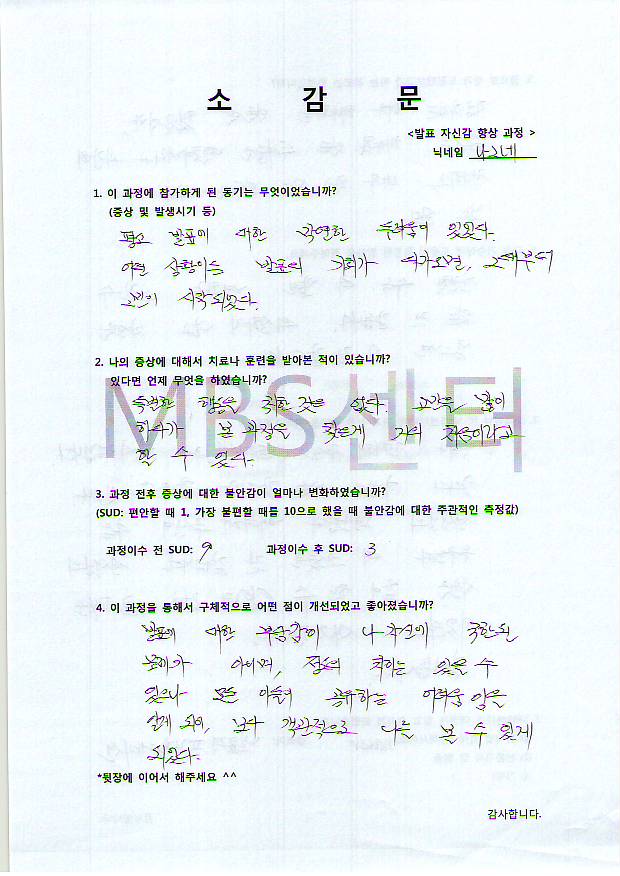 소 감 문
<발표 자신감 향상 과정 >
닉네임 나그네
1. 이 과정에 참가하게 된 동기는 무엇이었습니까?
(증상 및 발생시기 등)
평소 발표에 대한 막연한 두려움이 있었다.
어떤 상황이든 발표의 기회가 다가오면, 그때부터
고민이 시작되었다.
2. 나의 증상에 대해서 치료나 훈련을 받아본 적이 있습니까?
있다면 언제 무엇을 하였습니까?
MBS센터
특별한 행동을 취한 것은 없다. 고민을 많이
하다가 본 과정을 찾은게 거의 처음이라고
할 수 있다.
3. 과정 전후 증상에 대한 불안감이 얼마나 변화하였습니까?
(SUD: 편안할 때 1, 가장 불편할 때를 10으로 했을 때 불안감에 대한 주관적인 측정값)
과정이수 전 SUD: 9 과정이수 후 SUD: 3
4. 이 과정을 통해서 구체적으로 어떤 점이 개선되었고 좋아졌습니까?
발표에 대한 부담감이 나 자신에 국한된
문제가 아니며, 정도의 차이는 있을 수
있으나 모든 이들이 공유하는 어려움임을
알게 되어, 보다 객관적으로 나를 볼 수 있게
되었다.
*뒷장에 이어서 해주세요 ^^
감사합니다.